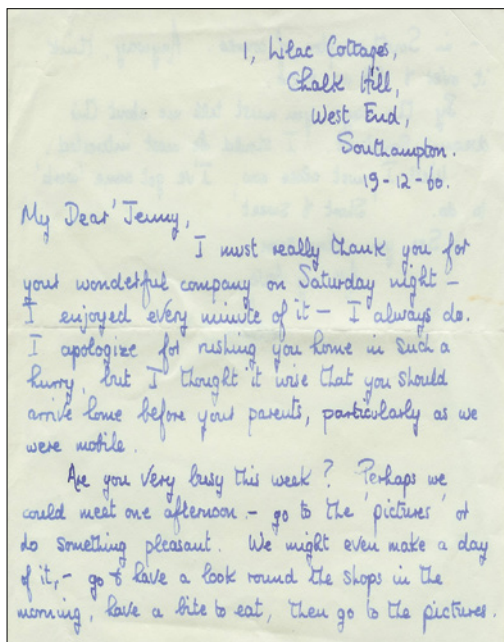 1, Lilac Cottages,
Chalk Hill,
West End,
Southampton.
19-12-60.
My Dear Jenny,
I must really thank you for
your wonderful company on Saturday night –
I enjoyed every minute of it – I always do.
I apologize for rushing you home in such a
hurry, but I thought it wise that you should
arrive home before your parents, particularly as we
were mobile.
Are you very busy this week? Perhaps we
could meet one afternoon – go to the 'pictures' or
do something pleasant. We might even make a day
of it, – go & have a look round the shops in the
morning, have a bite to eat, then go to the pictures.